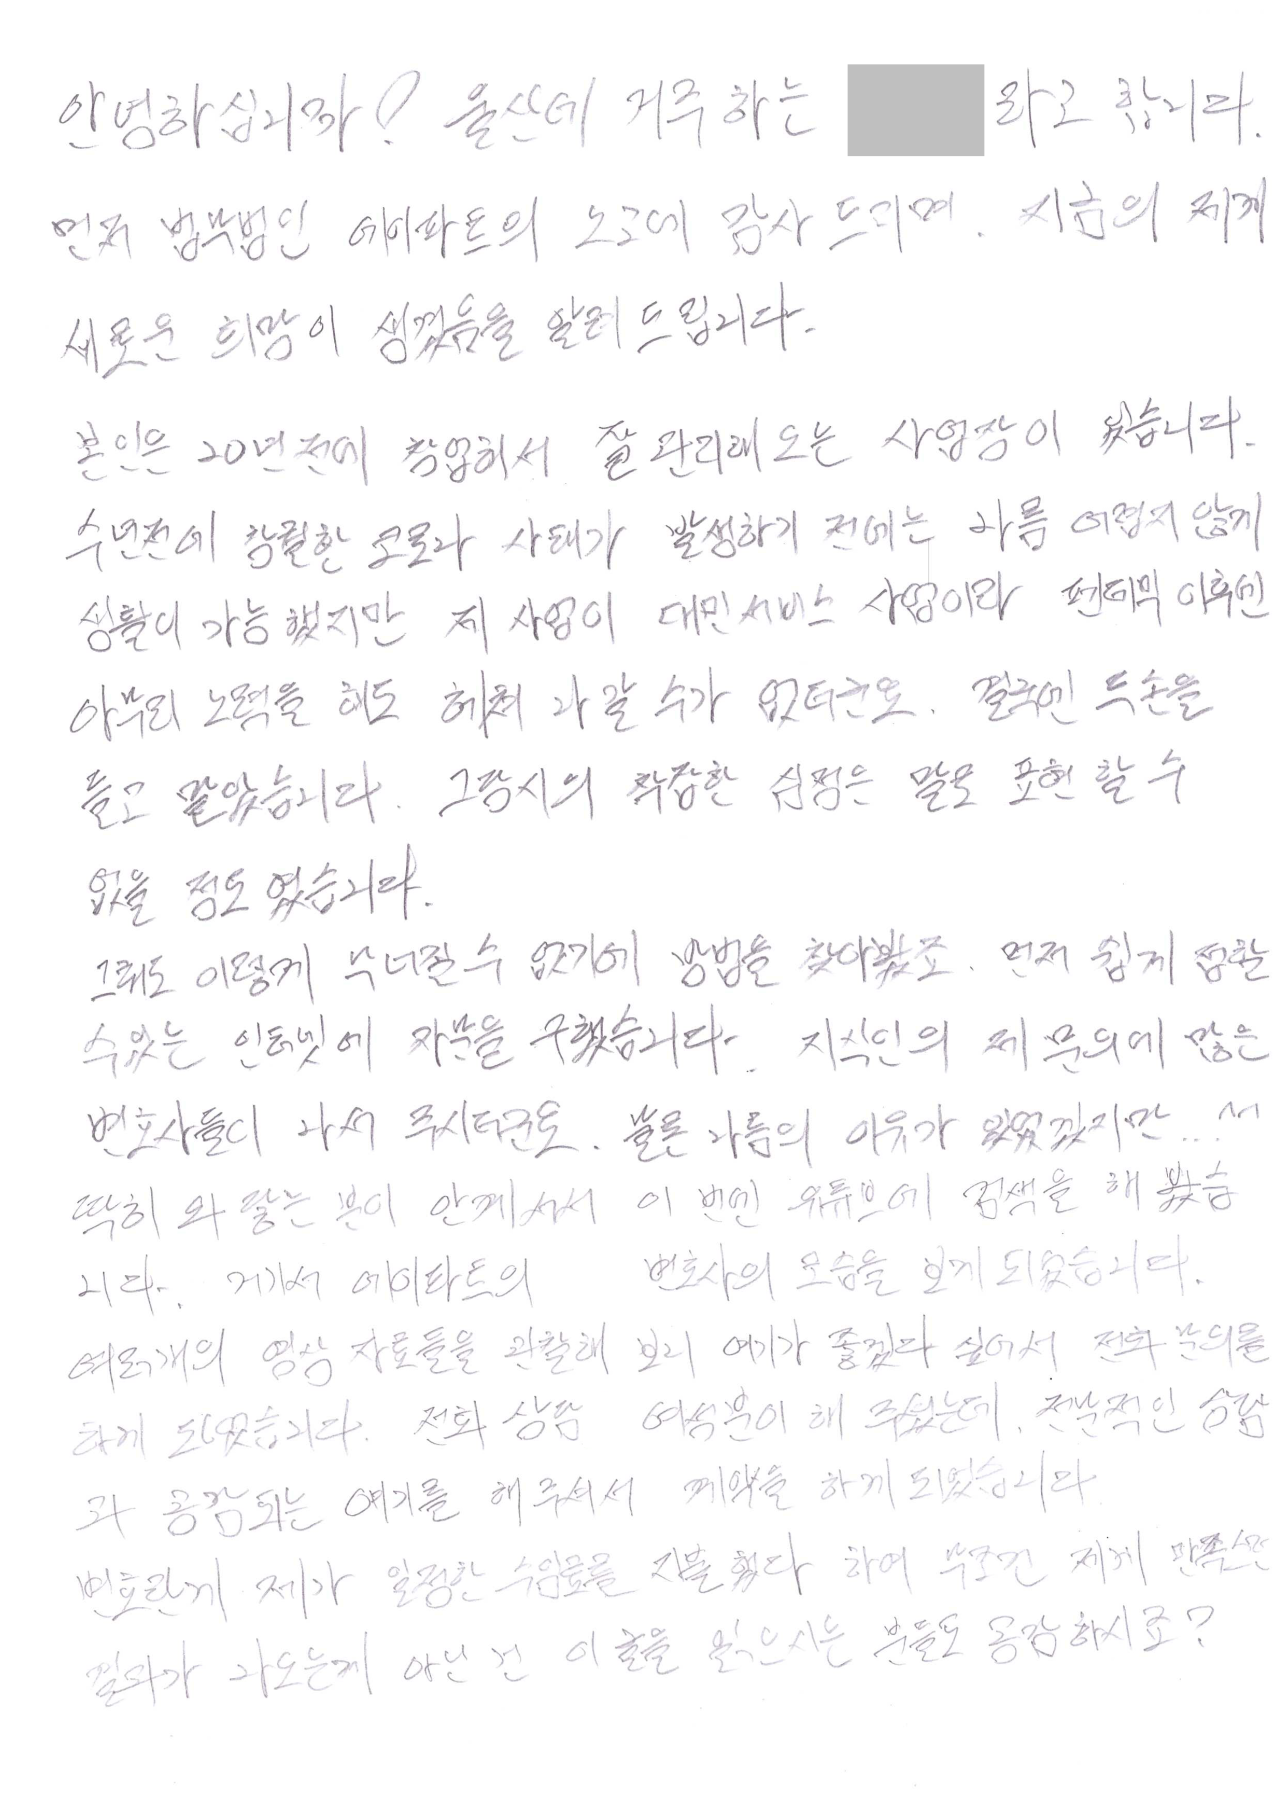 안녕하십니까? 울산에 거주하는 라고 합니다.
먼저 법무법인 에이파트의 노고에 감사 드리며. 지금의 제게
새로운 희망이 생겼음을 알려 드립니다.
본인은 20년전에 창업해서 잘 관리해 오는 사업장이 있습니다.
수년전에 창궐한 코로나 사태가 발생하기 전에는 나름 어렵지 않게
생활이 가능했지만 제 사업이 대민서비스 사업이라 펜데믹 이후엔
아무리 노력을 해도 헤쳐 나갈 수가 없더군요. 결국엔 두손을
들고 말았습니다. 그당시의 착잡한 심정은 말로 표현 할 수
없을 정도 였습니다.
그래도 이렇게 무너질 수 없기에 방법을 찾아봤죠. 먼저 쉽게 접할
수있는 인터넷에 자문을 구했습니다. 지식인의 제 문의에 많은
변호사들이 나서 주시더군요. 물론 나름의 이유가 있었겠지만...
딱히 와 닿는 분이 안계셔서 이 번엔 유튜브에 검색을 해 봤습
니다. 거기서 에이파트의 변호사의 모습을 보게 되었습니다.
여러개의 영상 자료들을 관찰해 보니 여기가 좋겠다 싶어서 전화 문의를
하게 되었습니다. 전화 상담 여성분이 해 주셨는데, 전문적인 상담
과 공감되는 얘기를 해주셔서 계약을 하게 되었습니다
변호란게 제가 일정한 수임료를 지불 했다 하여 무조건 제게 만족스런
결과가 나오는게 아닌 건 이 글을 읽으시는 분들도 공감하시죠?